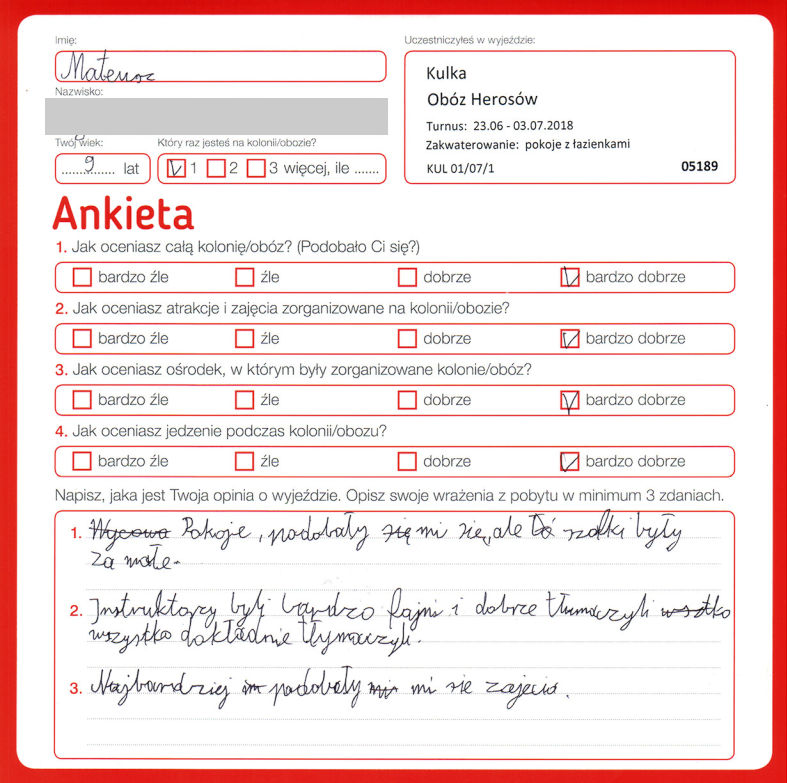 Imię:
Uczestniczyłeś w wyjeździe:
Mateusz
Kulka
Obóz Herosów
Nazwisko:
Turnus: 23.06 - 03.07.2018
Zakwaterowanie: pokoje z łazienkami
KUL 01/07/1
05189
Twój wiek:
Który raz jesteś na kolonii/obozie?
9 lat
1 2 3 więcej, ile .......
Ankieta
1. Jak oceniasz całą kolonię/obóz? (Podobało Ci się?)
bardzo źle źle dobrze bardzo dobrze
2. Jak oceniasz atrakcje i zajęcia zorganizowane na kolonii/obozie?
bardzo źle źle dobrze bardzo dobrze
3. Jak oceniasz ośrodek, w którym były zorganizowane kolonie/obóz?
bardzo źle źle dobrze bardzo dobrze
4. Jak oceniasz jedzenie podczas kolonii/obozu?
bardzo źle źle dobrze bardzo dobrze
Napisz, jaka jest Twoja opinia o wyjeździe. Opisz swoje wrażenia z pobytu w minimum 3 zdaniach.
1. Pokoje, podobały mi się, ale szafki były
za małe.
2. Instruktorzy byli bardzo fajni i dobrze tłumaczyli
wszystko dokładnie tłymaczyli.
3. Najbardziej podobały mi się zajęcia.